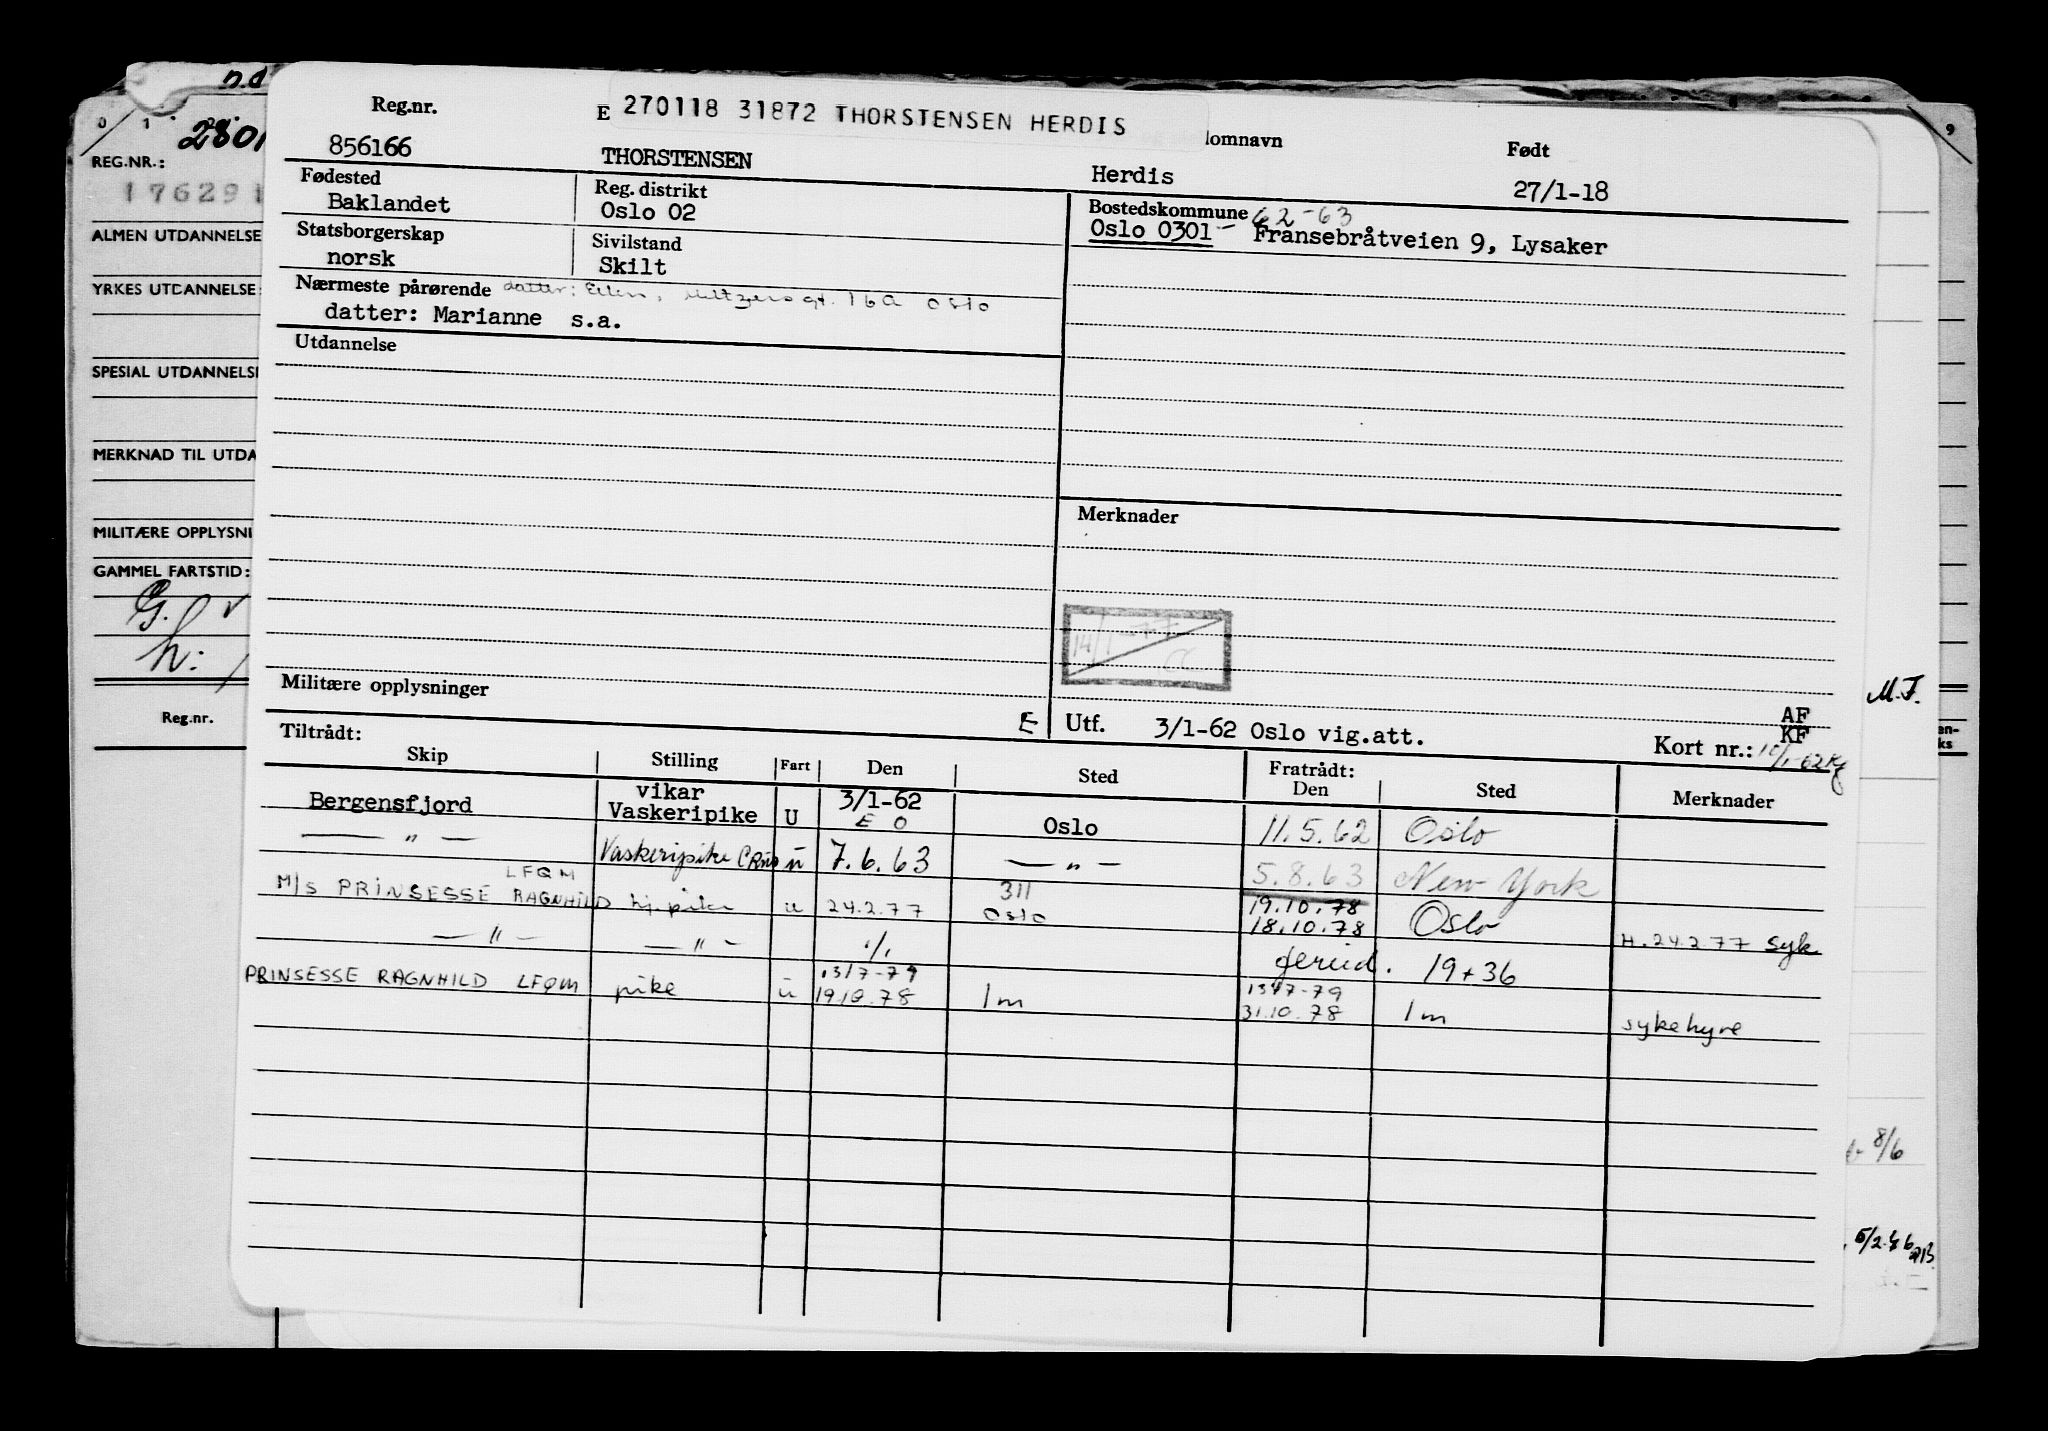 n.d
0 1 2801
REG.NR.:
176291
ALMEN UTDANNELSE
YRKES UTDANNELSE:
SPESIAL UTDANNELSE
MERKNAD TIL UTDA
MILITÆRE OPPLYSNI
GAMMEL FARTSTID:
G. v
h:
Reg.nr.
Reg.nr. E 270118 31872 THORSTENSEN HERDIS lomnavn Født
856166 THORSTENSEN Herdis 27/1-18
Fødested Reg. distrikt Bostedskommune 62-63
Baklandet Oslo 02 Oslo 0301 - Fransebråtveien 9, Lysaker
Statsborgerskap Sivilstand
norsk Skilt
Nærmeste pårørende datter: Ellen, Meltzersgt. 16A Oslo
datter: Marianne s.a.
Utdannelse
Merknader
14/1-77
Militære opplysninger
E Utf. 3/1-62 Oslo vig.att. AF
KF
Kort nr.:
Tiltrådt: Fratrådt:
Skip Stilling Fart Den Sted Den Sted Merknader
Bergensfjord vikar Vaskeripike U 3/1-62 E O Oslo 11.5.62 Oslo
— " — Vaskeripike u 7.6.63 — " — 5.8.63 New York
M/S PRINSESSE RAGNHILD LFQM hj.pike u 24.2.77 311 Oslo 19.10.78 18.10.78 Oslo H.24.2.77 syk
— " — — " — 19+36
PRINSESSE RAGNHILD LFQM pike u 13/7-79 19.10.78 1m 13/7-79 31.10.78 1m sykehyre
9
M.F.
en-
ks
8/6